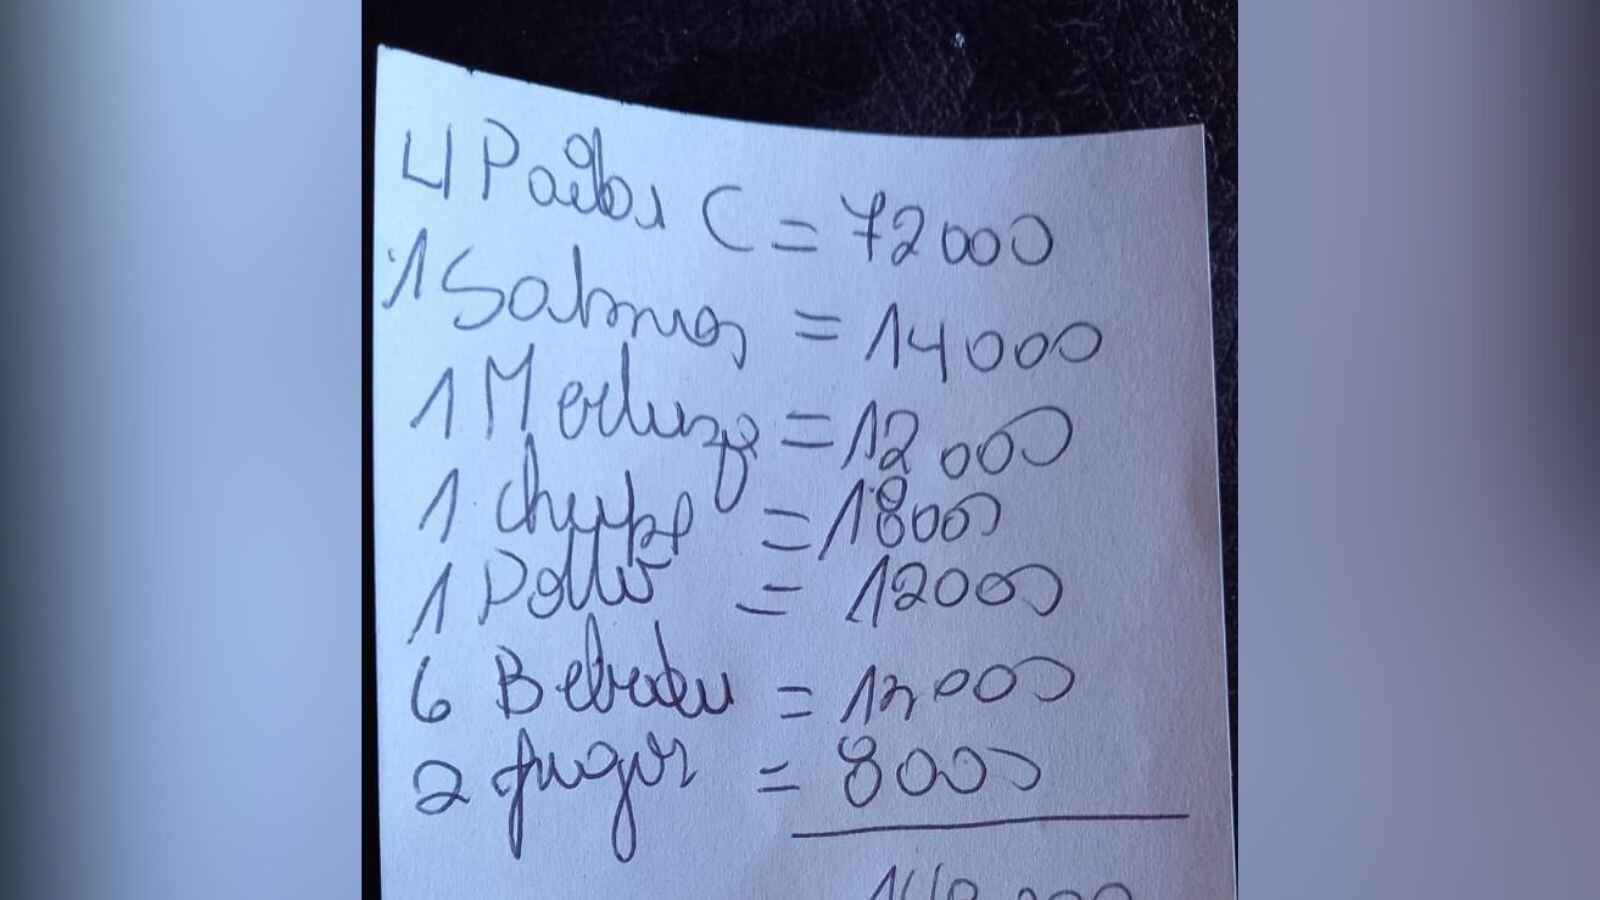 4 Pailas C = 72000
1 Salmon = 14000
1 Merluza = 12 000
1 chupe = 18000
1 Pollo = 12000
6 Bebidas = 12 000
2 jugos = 8000